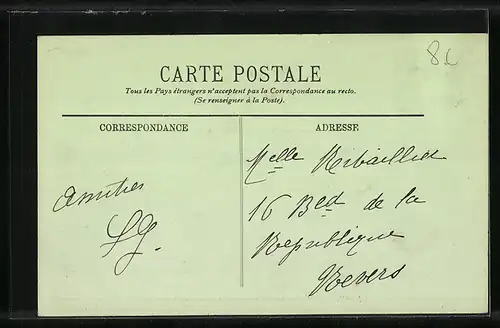 8L
CARTE POSTALE
Tous les Pays étrangers n'acceptent pas la Correspondance au recto.
(Se renseigner à la Poste).
CORRESPONDANCE
ADRESSE
Melle
16 Bed de la
République
Nevers
Amitiés
SG.